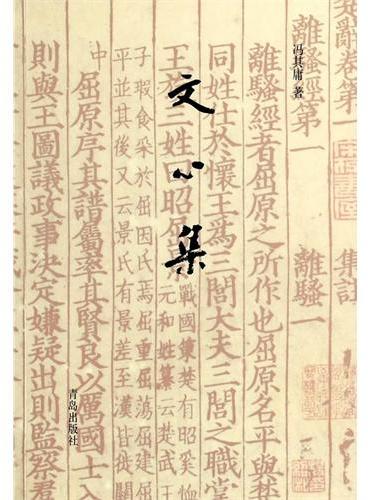 冯其庸 著
文心集
青岛出版社
楚辭卷第一
集註
離騷經第一
離騷一
離騷經者屈原之所作也屈原名平與楚
同姓仕於懷王為三閭大夫三閭之職掌
王族三姓曰昭屈景
戰國策楚有昭奚恤
元和姓纂云楚武王
子瑕食采於屈因氏焉屈重屈蕩屈建屈
平並其後又云景氏有景差至漢皆徙關
中
屈原序其譜屬率其賢良以厲國士入
則與王圖議政事決定嫌疑出則監察羣